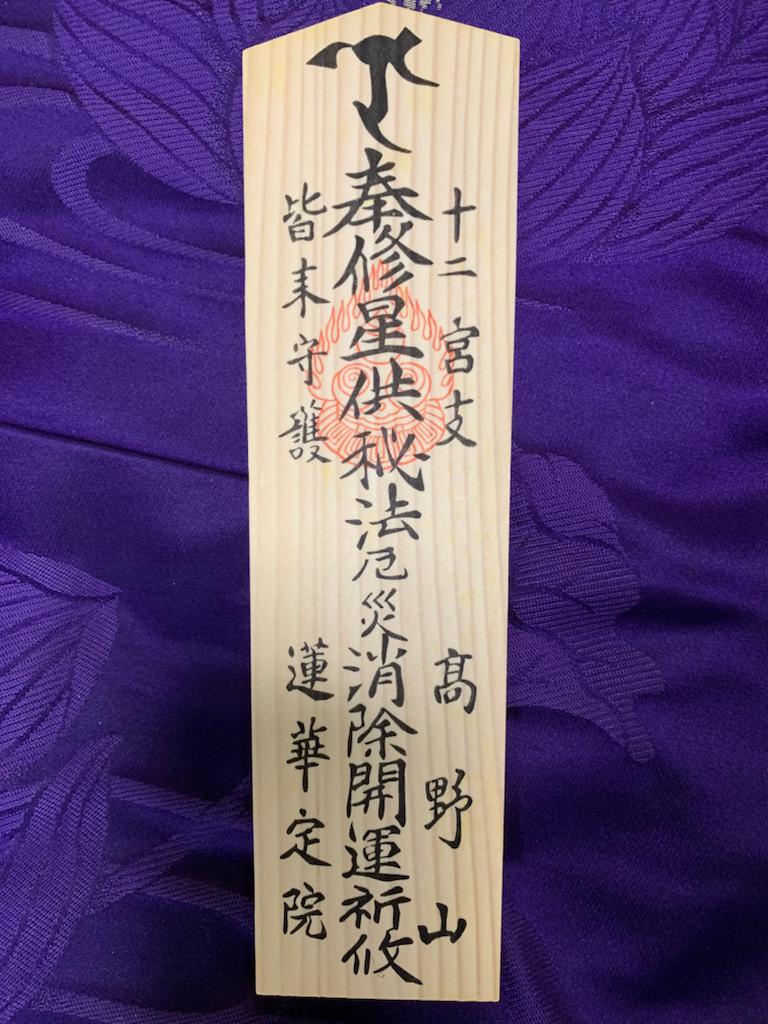 十二宮支
髙野山
奉修星供秘法厄災消除開運祈攸
皆来守護
蓮華定院